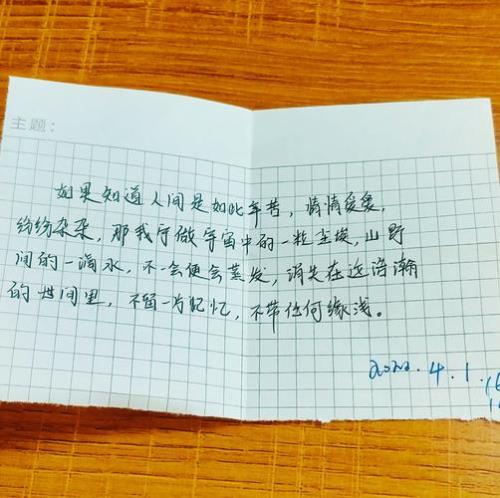 主题：
如果知道人间是如此辛苦，情情爱爱，
纷纷杂杂，那我宁做宇宙中的一粒尘埃，山野
间的一滴水，不一会便会蒸发，消失在这浩瀚
的世间里，不留一片记忆，不带任何缘浅。
2022.4.1.